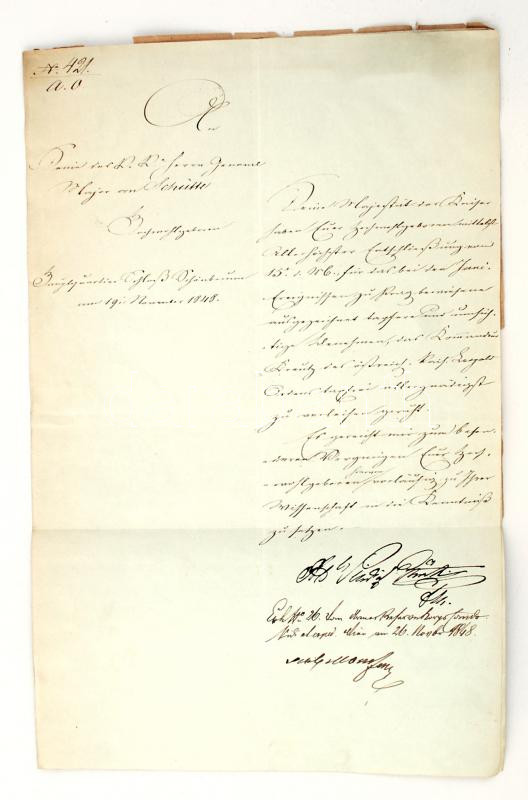 No. 421.
a. o
An
Seine des K. K. Herrn General
Major von Schütte
Hochwohlgeboren
Hauptquartier Schloß Schönbrunn
am 19t November 1848.
Seine Majestät der Kaiser
haben Euer Hochwohlgeboren mittelst
Allerhöchster Entschließung vom
15t d. Mts. für das bei den Juni-
Ereignissen zu Prag bewiesene
ausgezeichnet tapfere und umsich-
tige Benehmen, das Kommandeur
Kreutz des östreich. Kais. Leopold
Ordens taxfrei allergnädigst
zu verleihen geruht.
Es gereicht mir zum beson-
deren Vergnügen Euer Hoch-
wohlgeboren hievon vorläufig zu Ihrer
Wissenschaft in die Kenntniß
zu setzen.
FM.
No. 26. vom
Wien am 26. Novbr 1848.